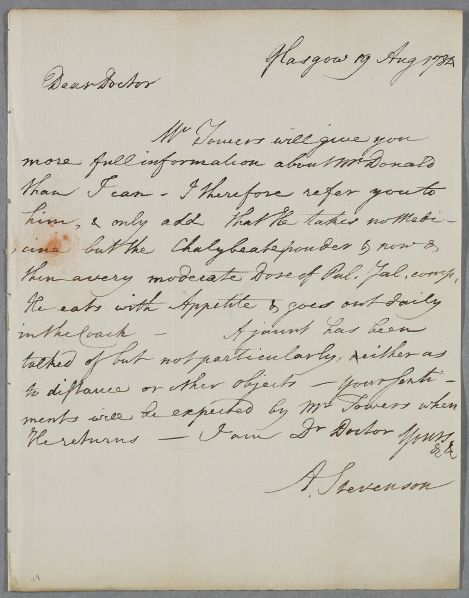 Glasgow 19 Aug 1784
Dear Doctor
Mr. Towers will give you
more full information about Mr. Donald
than I can - I therefore refer you to
him, & only add that He takes no Medi-
cine but the Chalybeate powder & now &
then a very moderate Dose of Pul. Jal. comp.
He eats with Appetite & goes out daily
in the Coach - A jaunt has been
talked of but not particularly, neither as
to distance or other objects - your senti-
ments will be expected by Mr Towers when
He returns - I am Dr Doctor Yours
&c &c
A. Stevenson